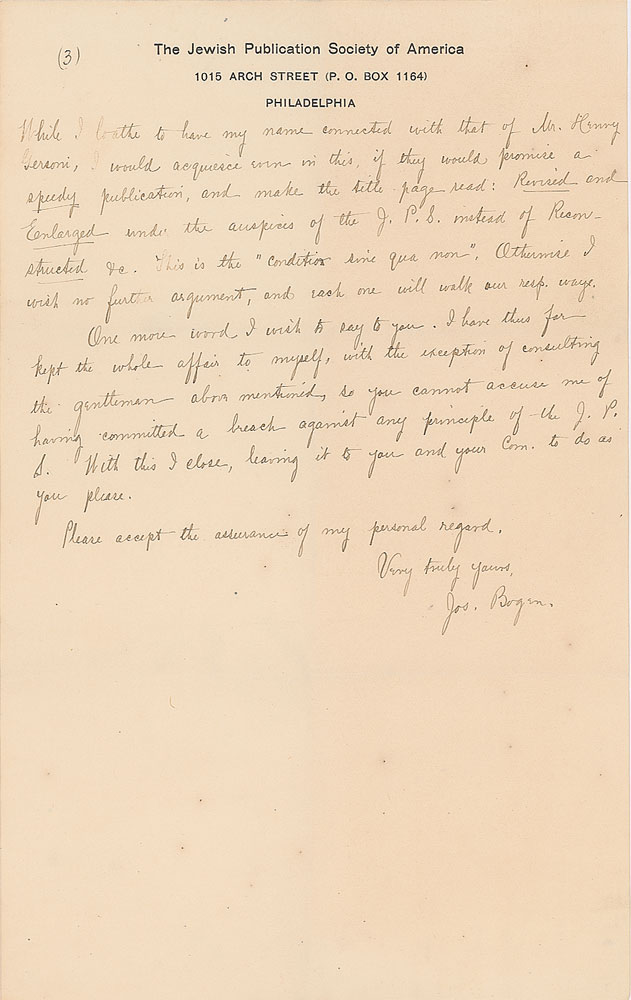 (3)
The Jewish Publication Society of America
1015 ARCH STREET (P. O. BOX 1164)
PHILADELPHIA
While I loathe to have my name connected with that of Mr. Henry
Gersoni, I would acquiesce even in this, if they would promise a
speedy publication, and make the title-page read: Revised and
Enlarged under the auspices of the J. P. S. instead of Recon-
structed &c. This is the "condition sine qua non". Otherwise I
wish no further argument, and each one will walk our resp. ways.
One more word I wish to say to you. I have thus far
kept the whole affair to myself, with the exception of consulting
the gentleman above mentioned, so you cannot accuse me of
having committed a breach against any principle of the J. P.
S. With this I close, leaving it to you and your Com. to do as
you please.
Please accept the assurance of my personal regard.
Very truly yours,
Jos. Bogen.